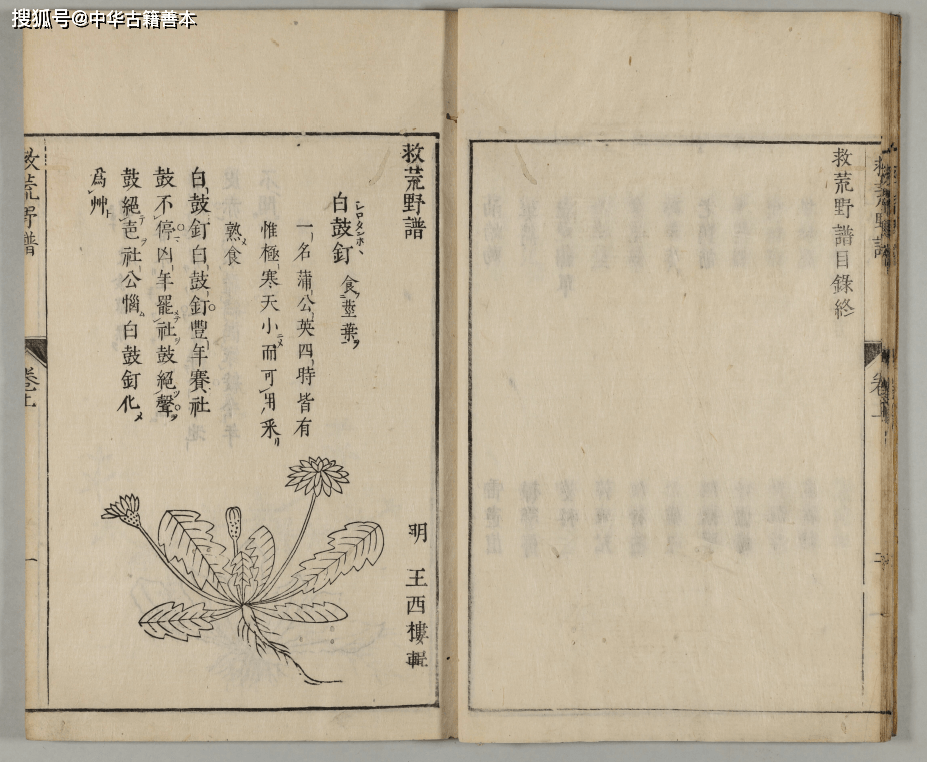 搜狐号@中华古籍善本
救荒野譜目錄終
救荒野譜
卷上
救荒野譜
明 王西樓輯
白鼓釘 食莖葉
シロタンホヽ
一名蒲公英四時皆有
惟極寒天小而可用采
熟食
白鼓釘白鼓釘豐年賽社
鼓不停凶年罷社鼓絕聲
鼓絕聲社公惱白鼓釘化
爲艸
救荒野譜
卷上
一